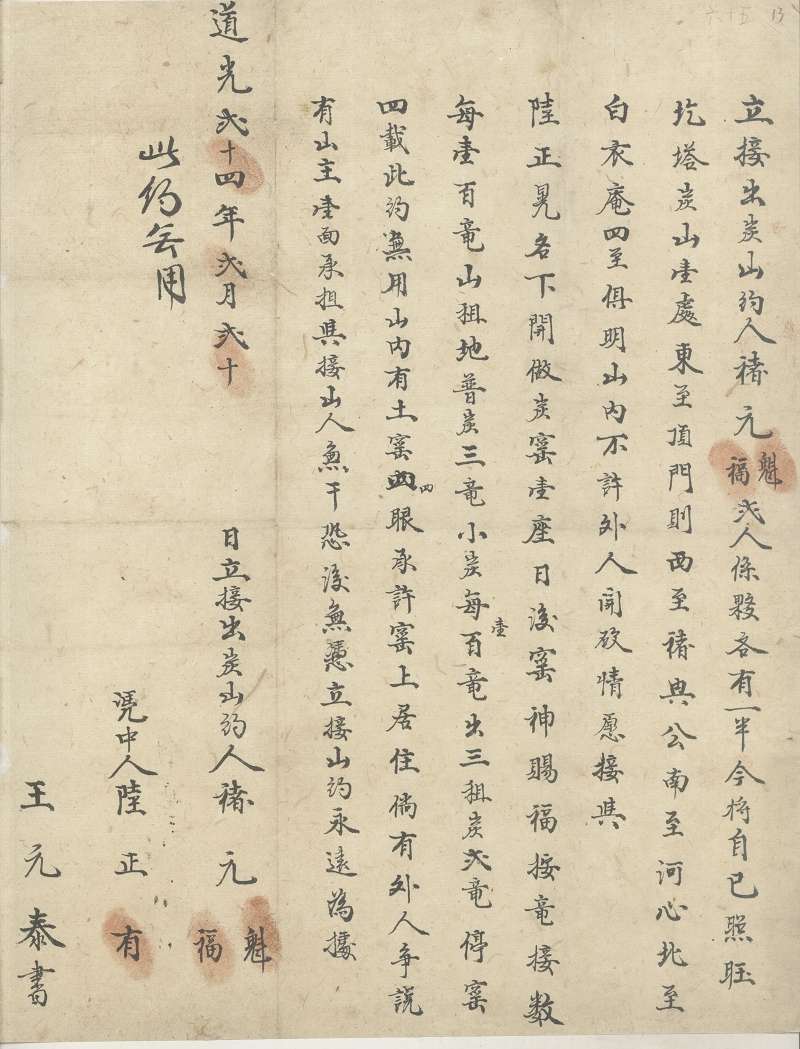 六十五 13
立接出炭山約人禇元魁福弍人係夥各有一半今將自己照旺
圪塔炭山壹處東至頂門則西至禇興公南至河心北至
白衣庵四至俱明山內不許外人開砍情愿接與
陸正晃名下開做炭窰壹座日後窰神賜福按竜接数
每壹百竜山租地普炭三竜小炭每壹百竜出三租炭弍竜停窰
四載此約無用山內有土窰四眼承許窰上居住倘有外人爭說
有山主壹面承担與接山人無干恐後無憑立接山約永遠為據
道光弍十四年弍月弍十日立接出炭山約人禇元魁福
此約無用
凴中人陸正有
王元泰書